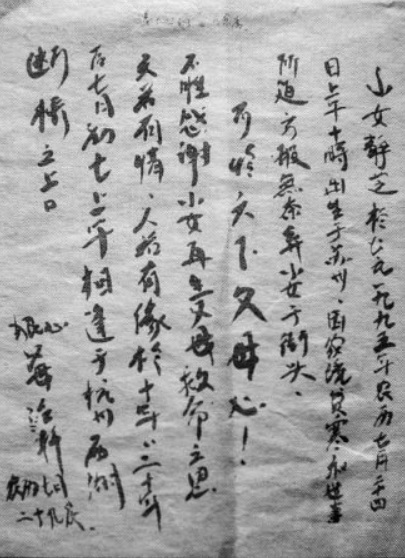 小女靜芝於公元一九九五年农历七月二十四
日上午十時出生于苏州、因家境貧寒和世事
所迫万般無奈弃小女于街头、
可怜天下父母心!
不胜感谢小女再生父母救命之恩
天若有情、人若有缘於十年、二十年
后七月初七上午相逢于杭州西湖
断桥之上口
狠心
农历七月
二十九夜